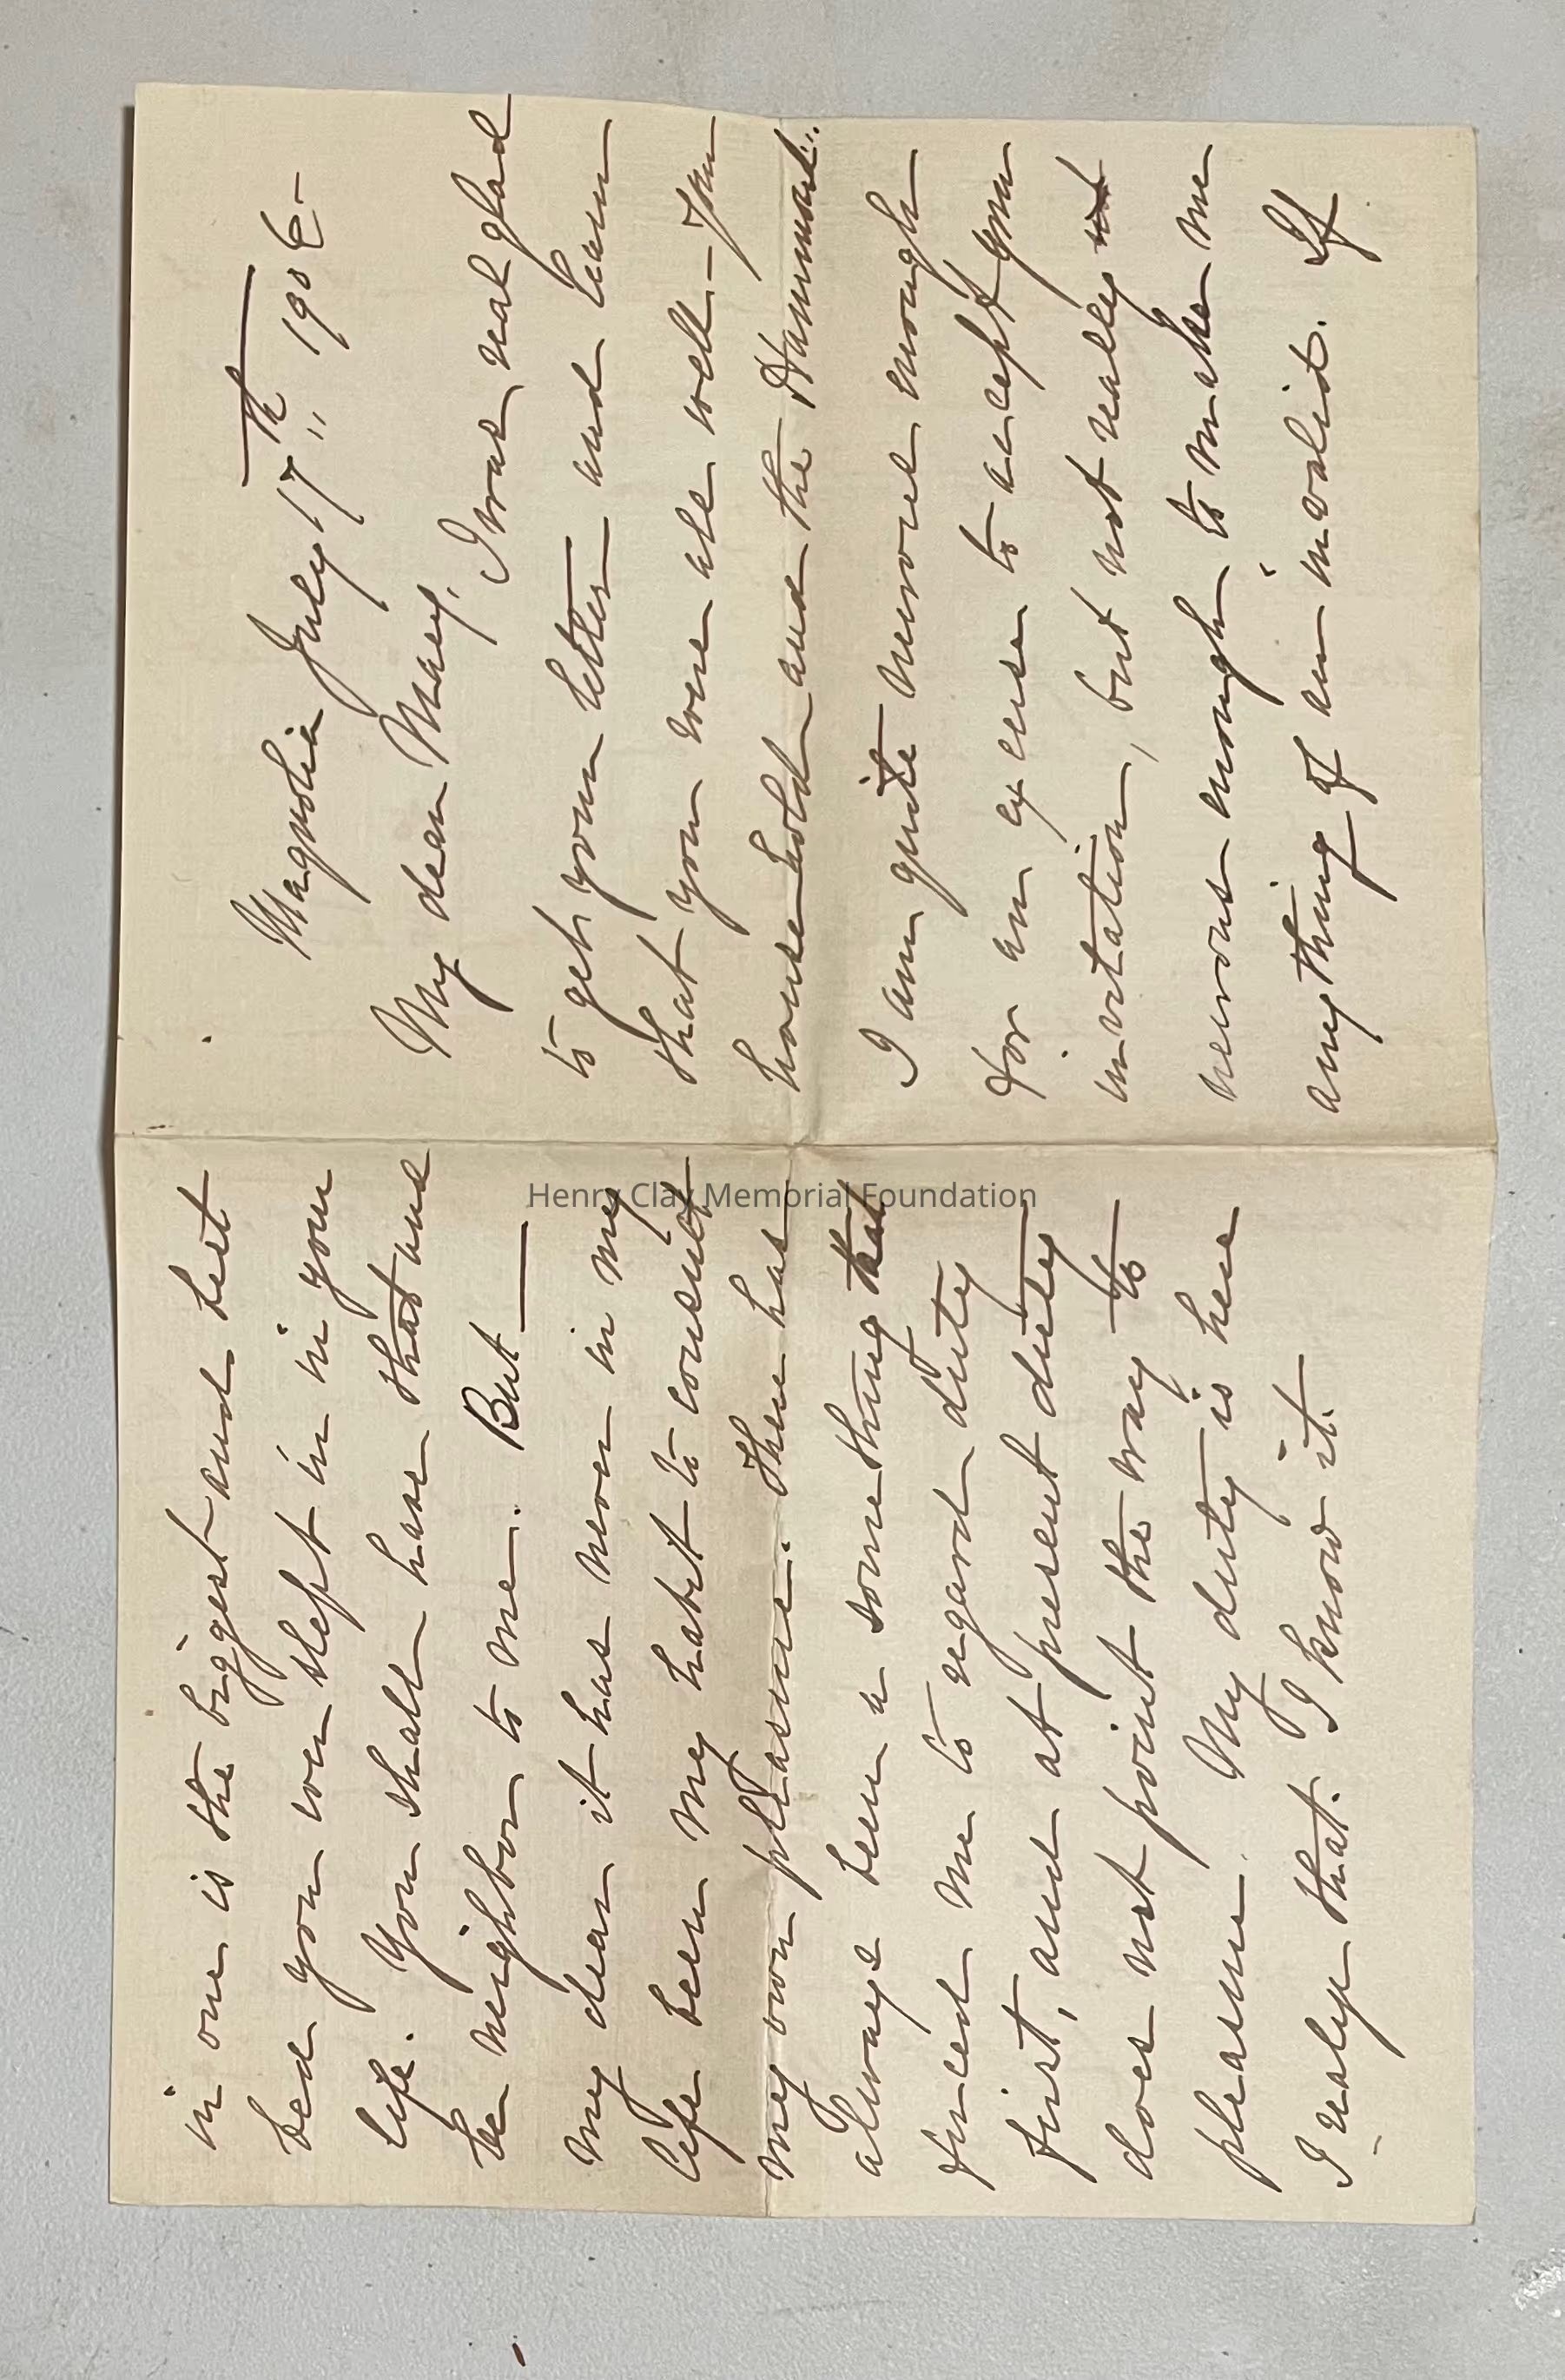 Magnolia July 17th 1906–
My dear Mary, I was real glad
to get your letter and learn
that you were all well – your
household and the Hammond..
I am quite nervous enough
for an excuse to accept your
invitation, but not really
nervous enough to make me
anything of an invalid. If
in one is the biggest and best
bed you ever slept in in your
life. You shall have that and
be neighbor to me. But —
my dear it has never in my
life been my habit to consult
my own pleasure. There has
always been a something that
forced me to regard duty
first, and at present duty
does not point the way to
pleasure. My duty is here
I realy that. I know it.
Henry Clay Memorial Foundation